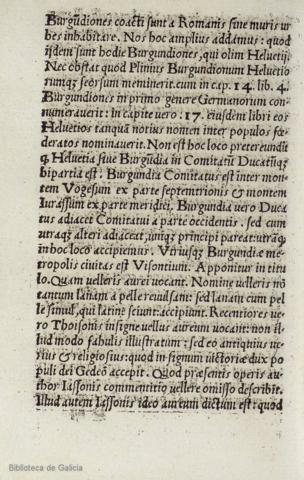 Burgūdiones coacti sunt a Romanis sine muris ur
bes inhabitare. Nos hoc amplius addamus: quod
ijdem sunt hodie Burgundiones, qui olim Helvetij.
Nec obstat quod Plinius Burgundionum Helvetio
rumq; seorsum meminerit. cum in cap. 14. lib. 4.
Burgundiones in primo genere Germanorum con
numeraverit: in capite vero. 17. eiusdem libri eos
Helvetios tanquā notius nomen inter populos fœ
deratos nominaverit. Non est hoc loco pretereundū
q̃ Helvetia sive Burgūdia in Comitatū Ducatūq;
bipartia est. Burgundia Comitatus est inter mon
tem Vogesum ex parte septentrionis & montem
Iurassum ex parte meridiei. Burgundia vero Duca
tus adiacet Comitatui a parte occidentis. sed cum
utraq; alteri adiaceat, uniq; principi pareat. utrāq;
in hoc loco accipiemus. Vtriusq; Burgundiæ me
tropolis civitas est Visontium. Apponitur in titu
lo. Quam velleris aurei vocant. Nomine velleris nō
tantum lanam a pelle evulsam: sed lanam cum pel
le simul, qui latine sciunt accipiunt. Recentiores ve
ro Thoisonis insigne vellus aureum vocant: non il
lud modo fabulis illustratum: sed eo antiquius ve
rius & religiosius: quod in signum victoriæ dux po
puli dei Gedeō accepit. Quod præsentis operis au
thor Iassonis commentitio vellere omisso describit.
Illud autem Iassonis ideo aureum dictum est: quod
Biblioteca de Galicia